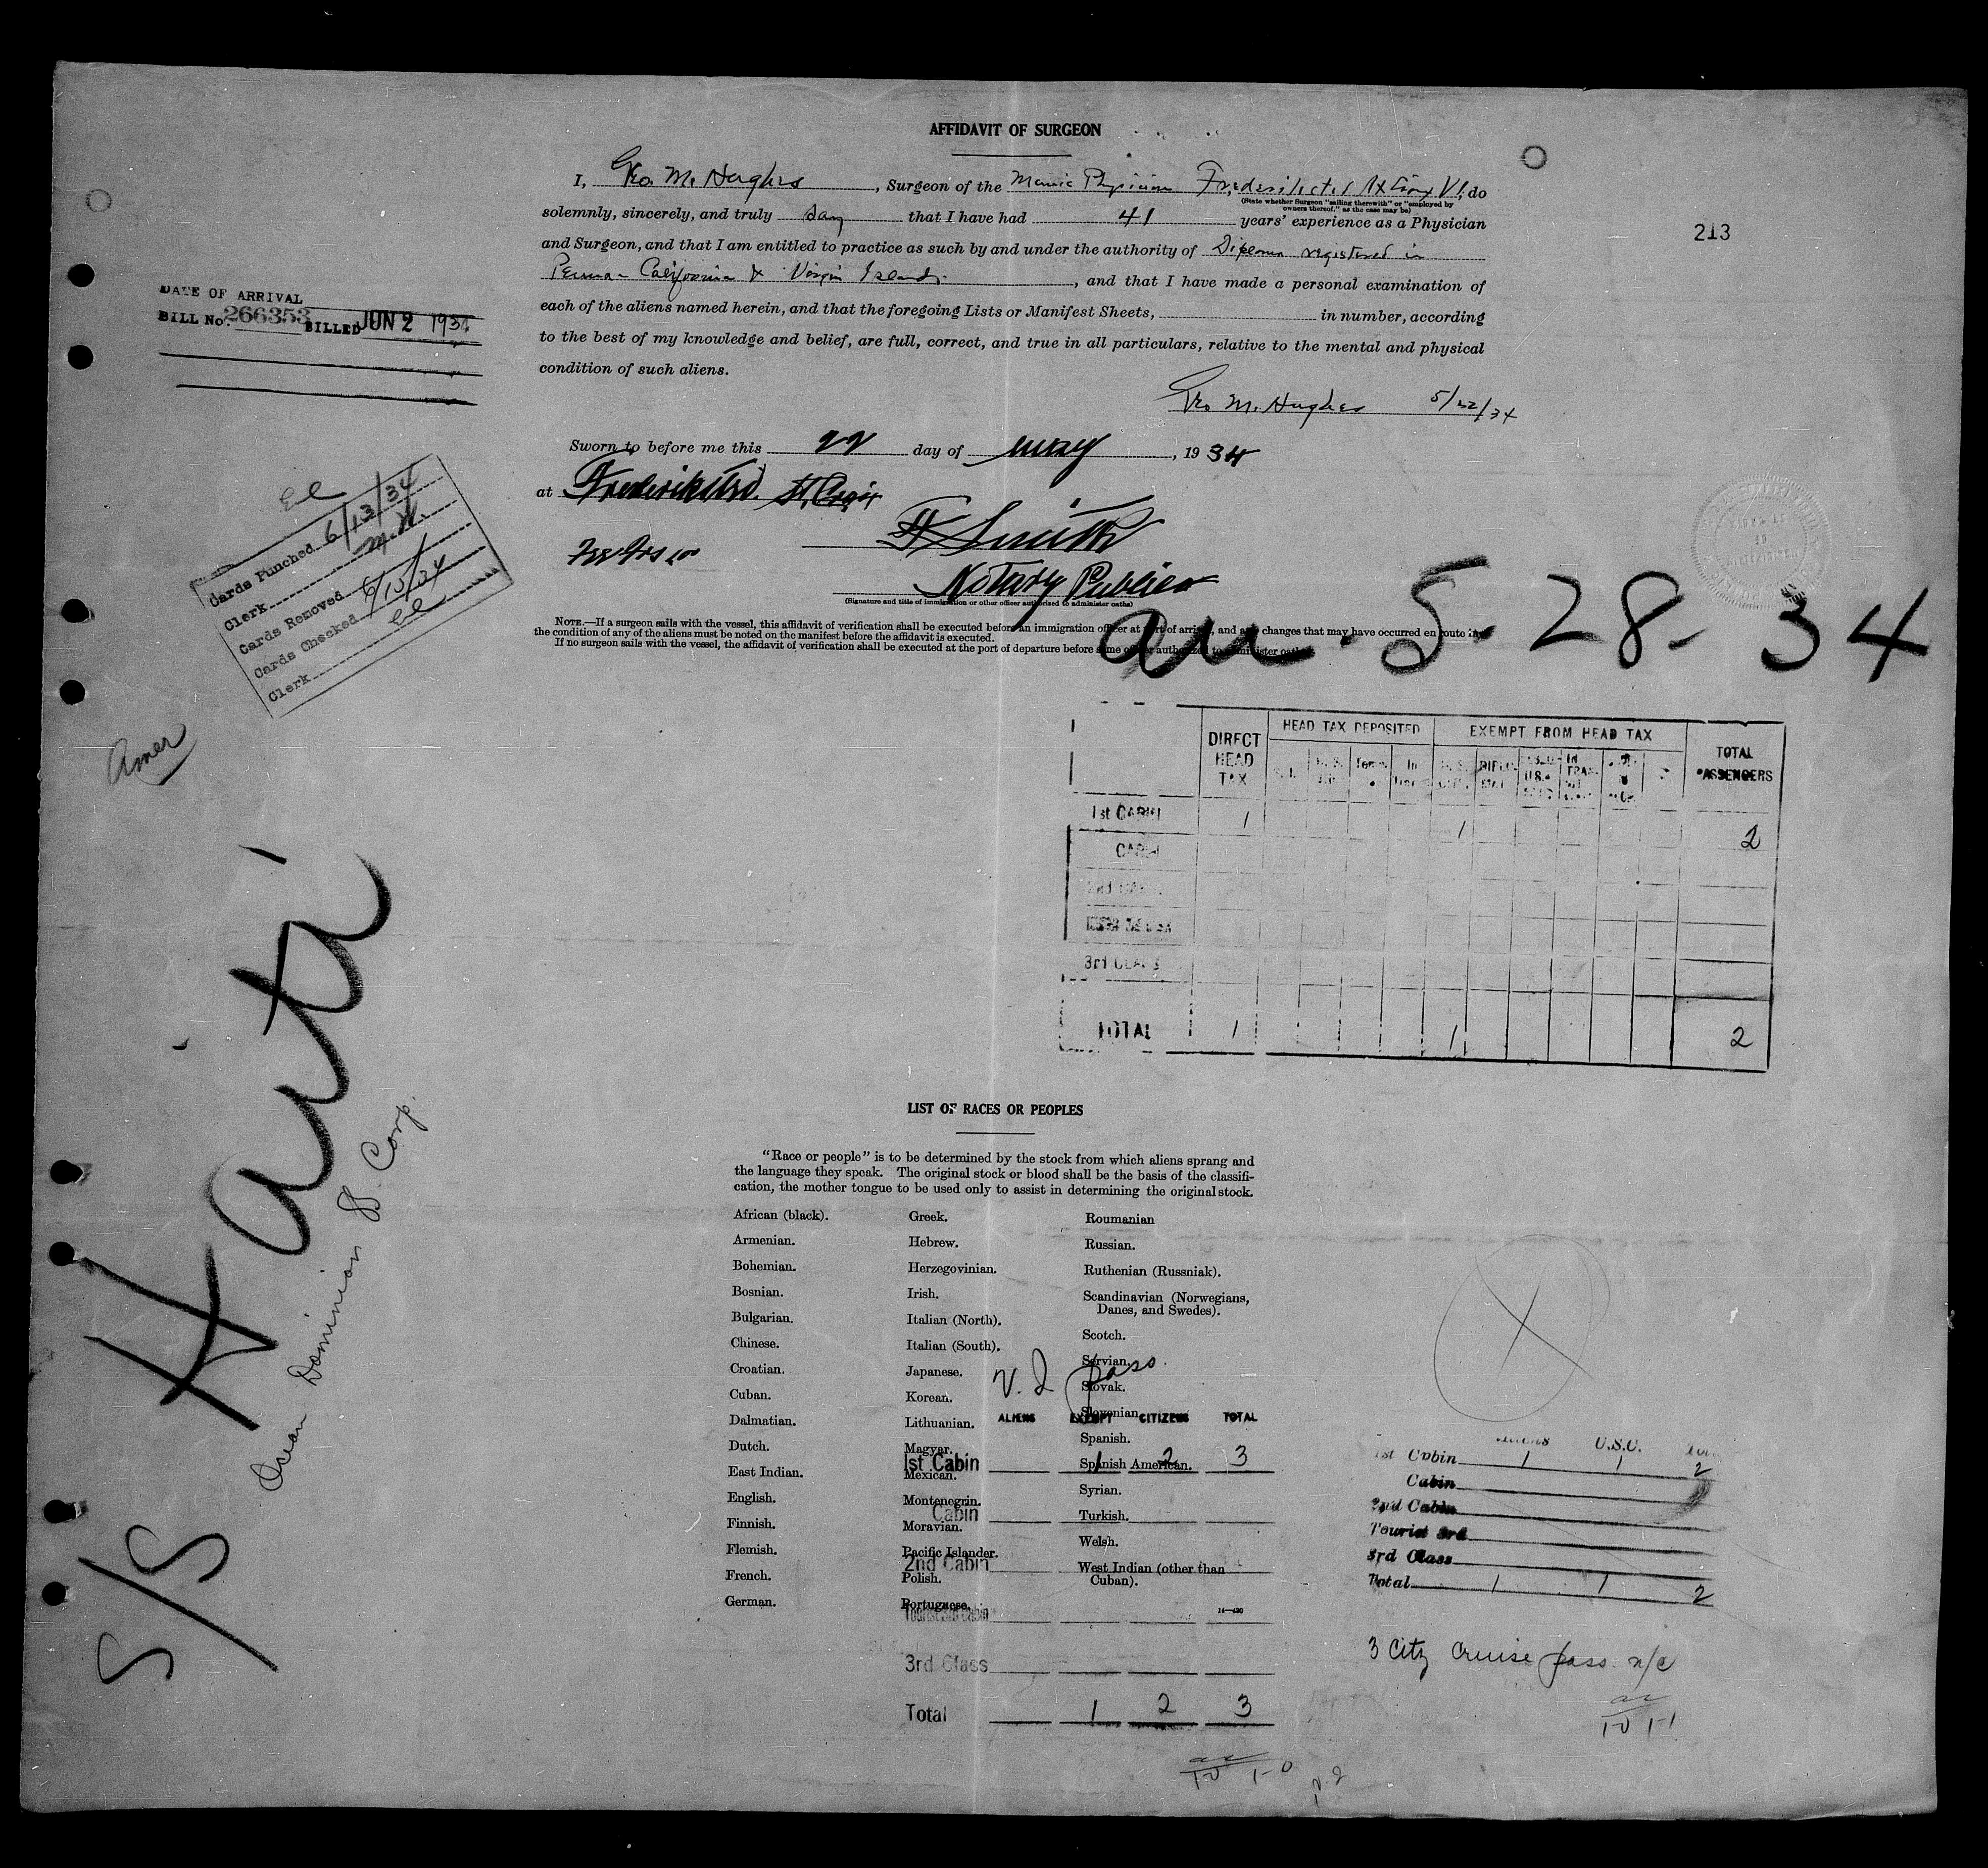 AFFIDAVIT OF SURGEON
I, Geo. M. Hughes, Surgeon of the Physician do
(State whether Surgeon "sailing therewith" or "employed by
owners thereof," as the case may be)
213
solemnly, sincerely, and truly say that I have had 41 years' experience as a Physician
and Surgeon, and that I am entitled to practice as such by and under the authority of Diploma registered in
Penna - California & Virgin Islands, and that I have made a personal examination of
each of the aliens named herein, and that the foregoing Lists or Manifest Sheets, in number, according
to the best of my knowledge and belief, are full, correct, and true in all particulars, relative to the mental and physical
condition of such aliens.
Geo. M. Hughes 5/22/34
DATE OF ARRIVAL
BILL No. 266353 BILLED JUN 2 1934
Sworn to before me this 22 day of may, 1934
at Frederiksted St. Croix
Smith
Notary Public
(Signature and title of immigration or other officer authorized to administer oaths)
NOTE.—If a surgeon sails with the vessel, this affidavit of verification shall be executed before an immigration officer at port of arrival, and any changes that may have occurred en route in
the condition of any of the aliens must be noted on the manifest before the affidavit is executed.
If no surgeon sails with the vessel, the affidavit of verification shall be executed at the port of departure before some officer authorized to administer oaths.
Cards Punched 6/13/34
Clerk M.H.
Cards Removed
Cards Checked 6/15/34
Clerk
arr. 5-28-34
Amer
S/S Haiti
Ocean Dominion SS. Corp.
DIRECT HEAD TAX
HEAD TAX DEPOSITED
EXEMPT FROM HEAD TAX
TOTAL PASSENGERS
1st CABIN 1 1 2
CABIN
2nd
3rd CLASS
TOTAL 1 1 2
LIST OF RACES OR PEOPLES
"Race or people" is to be determined by the stock from which aliens sprang and
the language they speak. The original stock or blood shall be the basis of the classifi-
cation, the mother tongue to be used only to assist in determining the original stock.
African (black).
Armenian.
Bohemian.
Bosnian.
Bulgarian.
Chinese.
Croatian.
Cuban.
Dalmatian.
Dutch.
East Indian.
English.
Finnish.
Flemish.
French.
German.
Greek.
Hebrew.
Herzegovinian.
Irish.
Italian (North).
Italian (South).
Japanese.
Korean.
Lithuanian.
Magyar.
Mexican.
Montenegrin.
Moravian.
Pacific Islander.
Polish.
Portuguese.
Roumanian
Russian.
Ruthenian (Russniak).
Scandinavian (Norwegians,
Danes, and Swedes).
Scotch.
Servian.
Slovak.
Slovenian.
Spanish.
Spanish American.
Syrian.
Turkish.
Welsh.
West Indian (other than
Cuban).
14—430
V. I pass.
ALIENS EXEMPT CITIZENS TOTAL
1st Cabin 1 2 3
Cabin
2nd Cabin
3rd Class
Total 1 2 3
Aliens U.S.C. Total
1st Cabin 1 1 2
Cabin
2nd Cabin
Tourist 3rd
3rd Class
Total 1 1 2
3 Citz Cruise pass. n/c